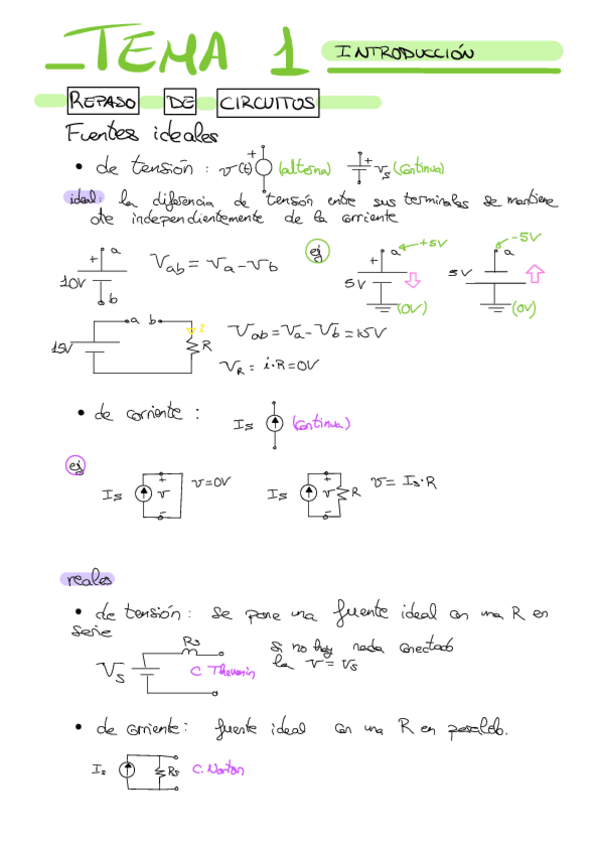 TEMA 1 INTRODUCCIÓN
REPASO DE CIRCUITOS
Fuentes ideales
• de tensión : v(t) + (alterna) + Vs (continua)
ideal: la diferencia de tensión entre sus terminales se mantiene
cte independientemente de la corriente
+ a 10V b Vab = Va - Vb ej + a +5V 5V (0V) -5V a 5V (0V)
15V a b i R Vab = Va - Vb = 15V
VR = i·R = 0V
• de corriente : Is (continua)
ej
Is + v - v = 0V Is + v - R v = Is·R
reales
• de tensión : se pone una fuente ideal con una R en
serie
Vs Rs C Thevenin si no hay nada conectado
la v = vs
• de corriente : fuente ideal con una R en paralelo.
Is Rs C. Norton